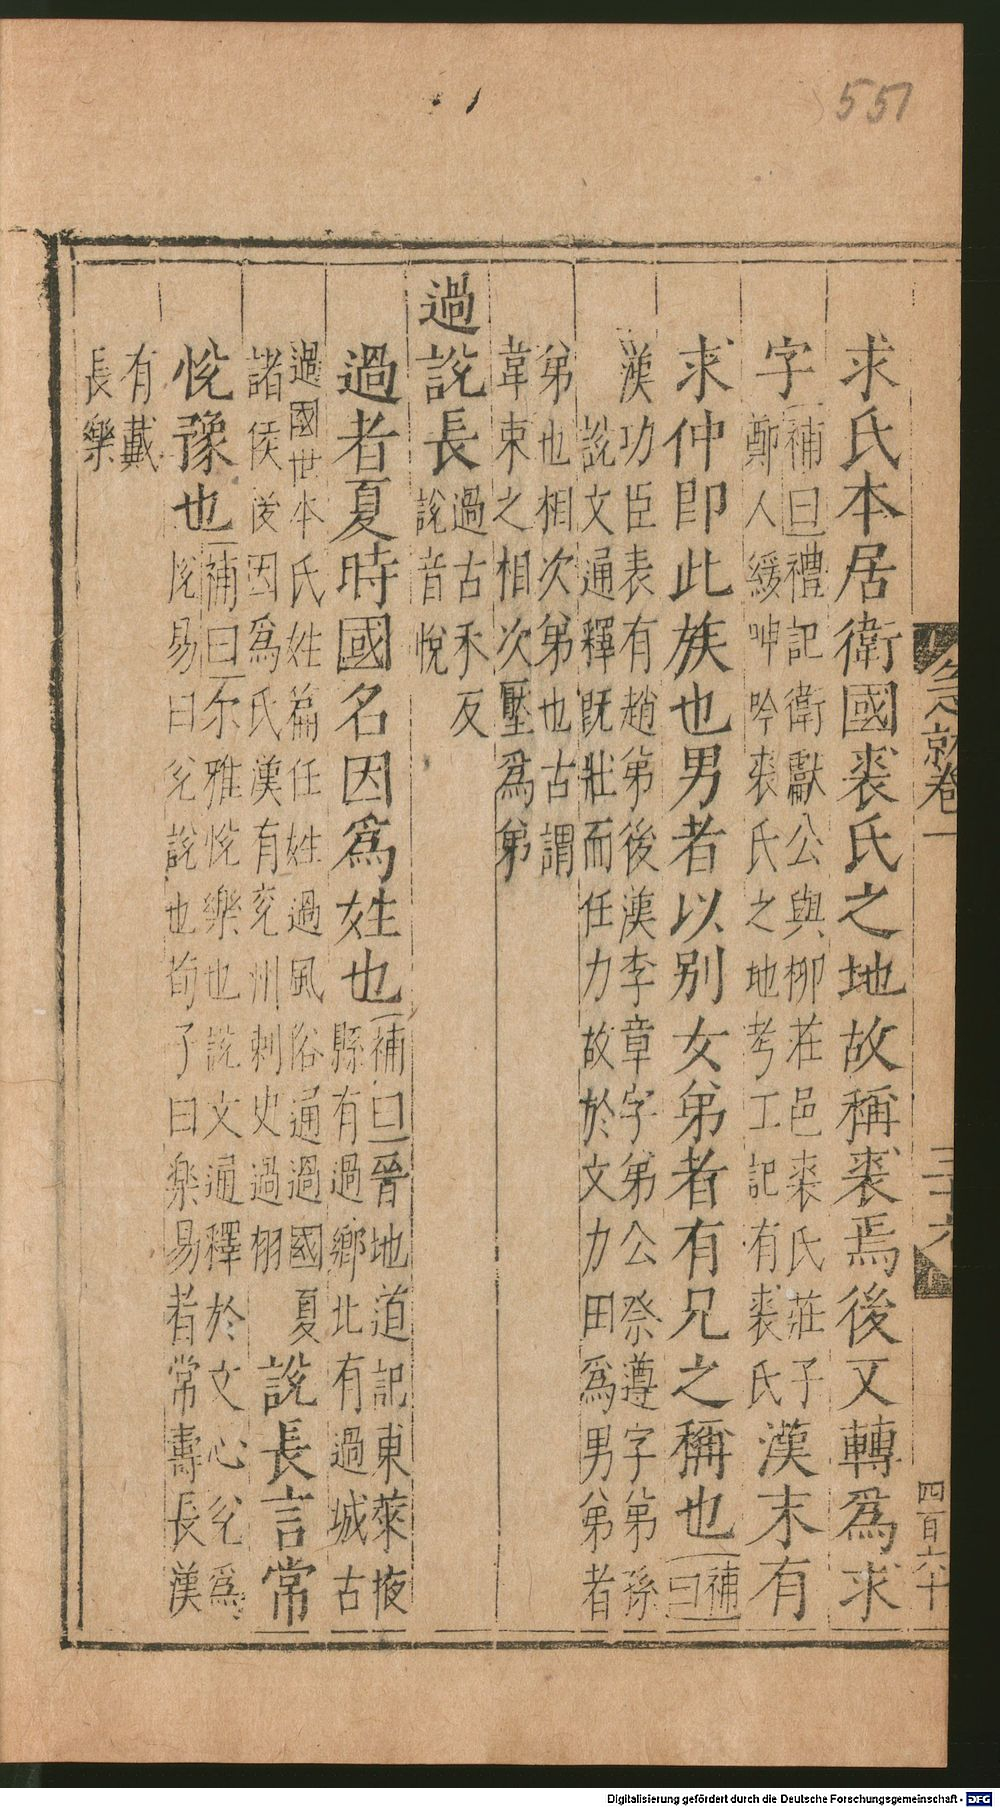 551
急就卷一
三十六
四百六十
求氏本居衛國裘氏之地故稱裘焉後又轉爲求
字補曰禮記衛獻公與柳莊邑裘氏莊子
鄭人緩呻吟裘氏之地考工記有裘氏漢末有
求仲即此族也男者以別女弟者有兄之稱也補曰
漢功臣表有趙第後漢李章字第公祭遵字第孫
說文通釋既壯而任力故於文力田爲男弟者
弟也相次第也古謂
韋束之相次壓爲弟
過說長過古禾反
說音悅
過者夏時國名因爲姓也補曰晉地道記東萊掖
縣有過鄉北有過城古
過國世本氏姓篇任姓過風俗通過國夏
諸侯後因爲氏漢有兗州刺史過栩說長言常
悅豫也補曰尔雅悅樂也說文通釋於文心兌爲
悅易曰兌說也荀子曰樂易者常壽長漢
有戴
長樂
Digitalisierung gefördert durch die Deutsche Forschungsgemeinschaft - DFG